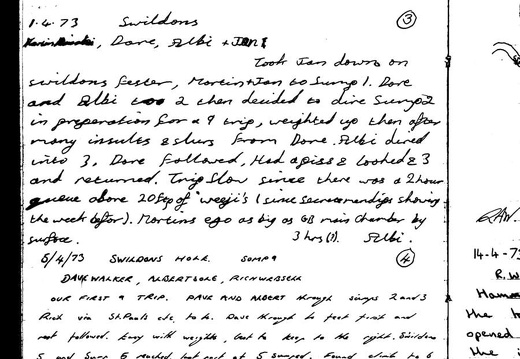 1.4.73 Swildons ③
Dave, Albi + JAN
Took Jan down on
Swildons faster, Martin + Jan to Sump 1. Dave
and Albi to 2 then decided to dive Sump 2
in preparation for a 9 trip, weighted up then after
many insults & slurs from Dave. Albi dived
into 3, Dave followed, Had a piss & looked @ 3
and returned. Trip slow since there was a 2 hour
queue above 20 step of weeji's (since showing
the week before). Martins ego as big as GB main chamber by
surface. 3 hrs (?). Albi.
5/4/73 SWILDONS HOLE. SUMP 9 ④
DAVE WALKER, ALBERT COLE, RICH WEBSELL
OUR FIRST 9 TRIP. DAVE AND ALBERT through sumps 2 and 3
Rich via St. Pauls etc. to 4. Dave through to feet first and
rest followed. Easy with weights, best to keep to the right. Swildons
5 and Sump 5 reached, but rest of 5 sumped. Found climb to 6
RAW.
14-4-73
R.W
the
opened
the